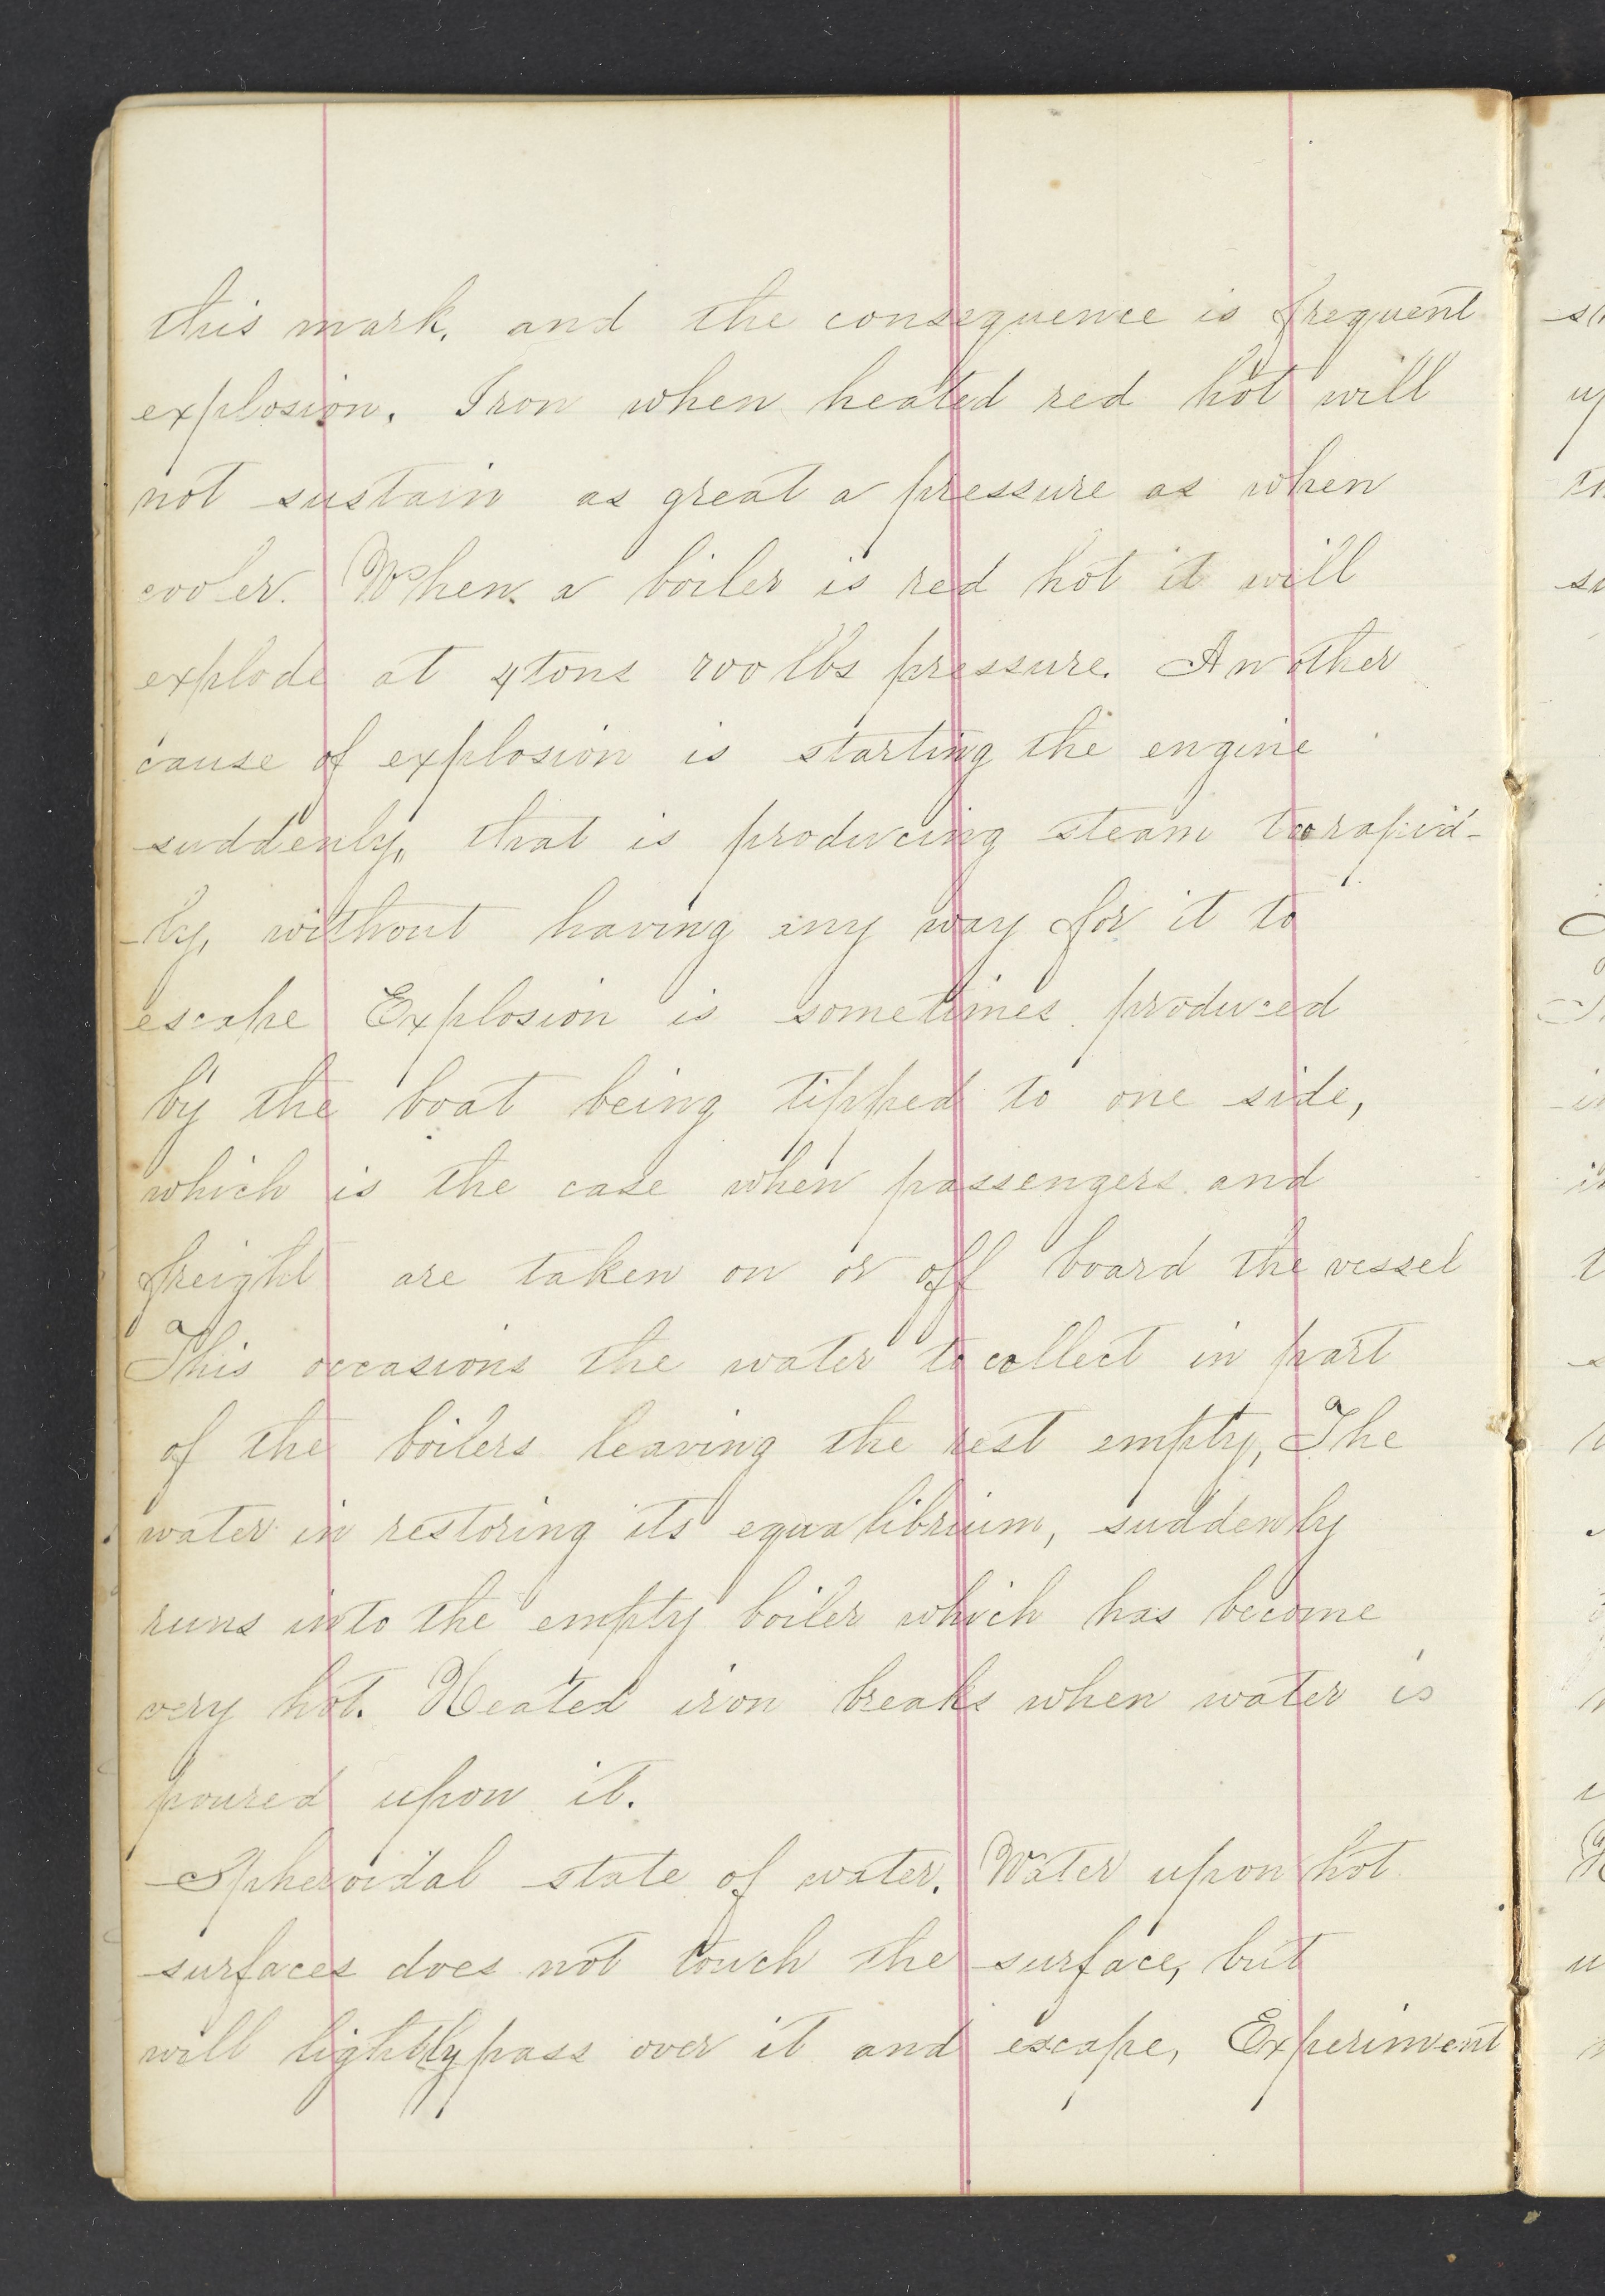 this mark, and the consequence is frequent
explosion. Iron when heated red hot will
not sustain as great a pressure as when
cooler. When a boiler is red hot it will
explode at 4 tons 700 lbs pressure. Another
cause of explosion is starting the engine
suddenly, that is producing steam too rapid-
-ly, without having any way for it to
escape Explosion is sometimes produced
by the boat being tipped to one side,
which is the case when passengers and
freight are taken on or off board the vessel
This occasions the water to collect in part
of the boilers leaving the rest empty, The
water in restoring its equalibrium, suddenly
runs into the empty boiler which has become
very hot. Heated iron breaks when water is
poured upon it.
Spheroidal state of water. Water upon hot
surfaces does not touch the surface, but
will lightly pass over it and escape, Experiment